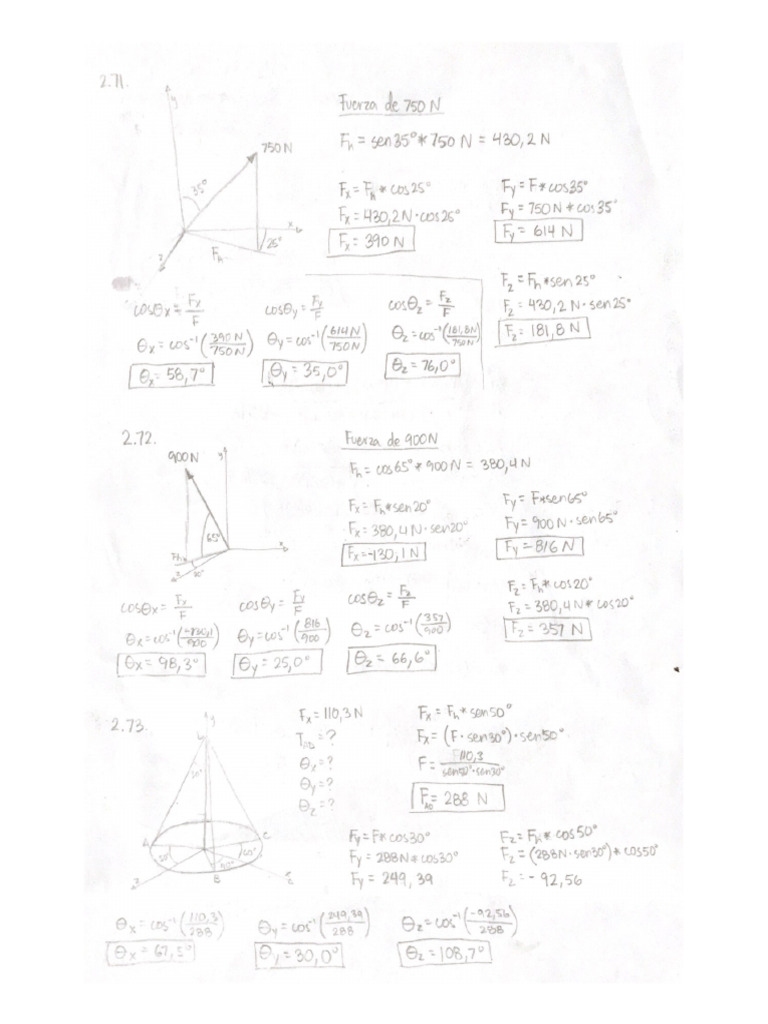 2.71.
y
750 N
35°
x
25°
Fh
z
Fuerza de 750 N
Fh = sen35° * 750 N = 430,2 N
Fx = Fh * cos25°
Fx = 430,2N · cos25°
Fx = 390 N
Fy = F * cos35°
Fy = 750 N * cos 35°
Fy = 614 N
Fz = Fh * sen 25°
Fz = 430,2 N · sen 25°
Fz = 181,8 N
cosθx = Fx/F
θx = cos⁻¹(390 N/750 N)
θx = 58,7°
cosθy = Fy/F
θy = cos⁻¹(614 N/750N)
θy = 35,0°
cosθz = Fz/F
θz = cos⁻¹(181,8N/750 N)
θz = 76,0°
2.72.
900 N
y
65°
x
Fh
z
20°
Fuerza de 900N
Fh = cos65° * 900 N = 380,4 N
Fx = Fh * sen20°
Fx = 380,4 N · sen20°
Fx = -130,1 N
Fy = F * sen65°
Fy = 900 N · sen 65°
Fy = 816 N
Fz = Fh * cos20°
Fz = 380,4 N * cos20°
Fz = 357 N
cosθx = Fx/F
θx = cos⁻¹(-130,1/900)
θx = 98,3°
cosθy = Fy/F
θy = cos⁻¹(816/900)
θy = 25,0°
cosθz = Fz/F
θz = cos⁻¹(357/900)
θz = 66,6°
2.73.
y
A
C
B
Fx = 110,3 N
TAD = ?
θx = ?
θy = ?
θz = ?
Fx = Fh * sen50°
Fx = (F · sen30°) · sen50°
F = 110,3/sen50° · sen30°
FAD = 288 N
Fy = F * cos30°
Fy = 288N * cos30°
Fy = 249,39
Fz = Fh * cos50°
Fz = (288N · sen30°) * cos50°
Fz = - 92,56
θx = cos⁻¹(110,3/288)
θx = 67,5°
θy = cos⁻¹(249,39/288)
θy = 30,0°
θz = cos⁻¹(-92,56/288)
θz = 108,7°